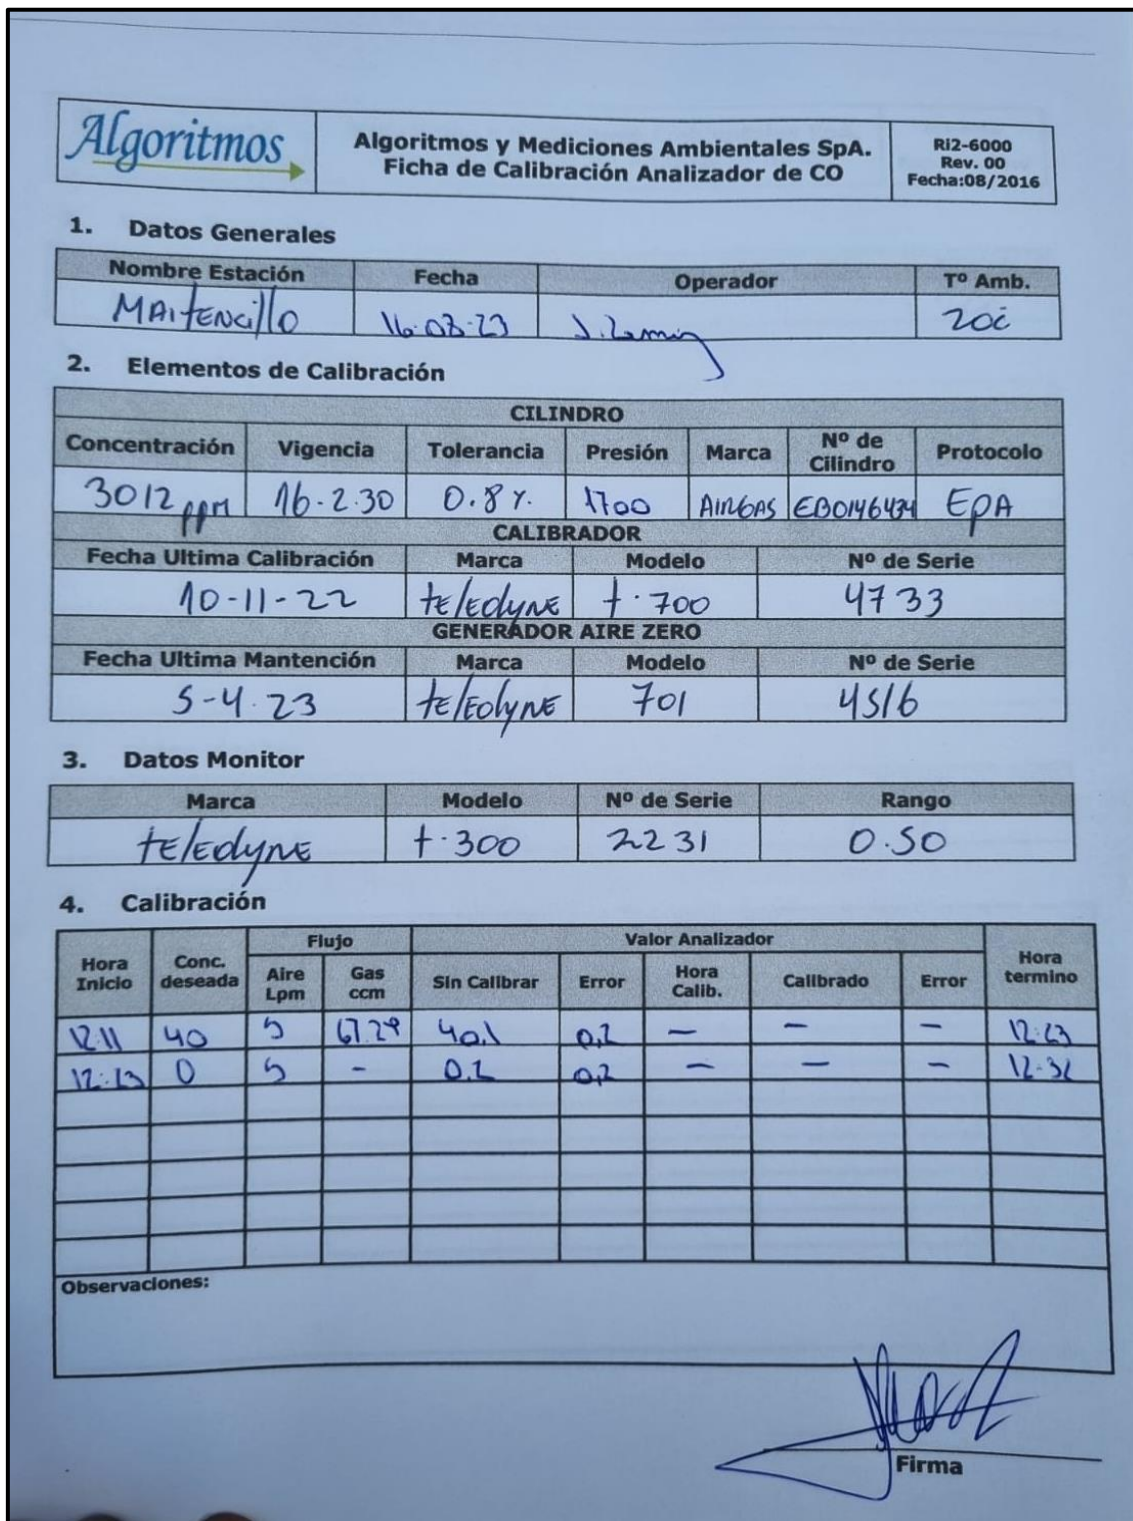 Algoritmos
Algoritmos y Mediciones Ambientales SpA.
Ficha de Calibración Analizador de CO
RI2-6000
Rev. 00
Fecha:08/2016
1. Datos Generales
Nombre Estación Fecha Operador Tº Amb.
MAITENCILLO 16-08-23 20c
2. Elementos de Calibración
CILINDRO
Concentración Vigencia Tolerancia Presión Marca Nº de Cilindro Protocolo
3012 ppm 16-2-30 0.8 %. 1700 AIRGAS EB0146434 EPA
CALIBRADOR
Fecha Ultima Calibración Marca Modelo Nº de Serie
10-11-22 tElEdyNE t.700 4733
GENERADOR AIRE ZERO
Fecha Ultima Mantención Marca Modelo Nº de Serie
5-4.23 tElEdyNE 701 4516
3. Datos Monitor
Marca Modelo Nº de Serie Rango
tElEdyNE t.300 2231 0.50
4. Calibración
Flujo Valor Analizador
Hora Inicio Conc. deseada Aire Lpm Gas ccm Sin Calibrar Error Hora Calib. Calibrado Error Hora termino
12:11 40 5 67.29 40.1 0,2 - - - 12:23
12:23 0 5 - 0.2 0,2 - - - 12:32
Observaciones:
Firma